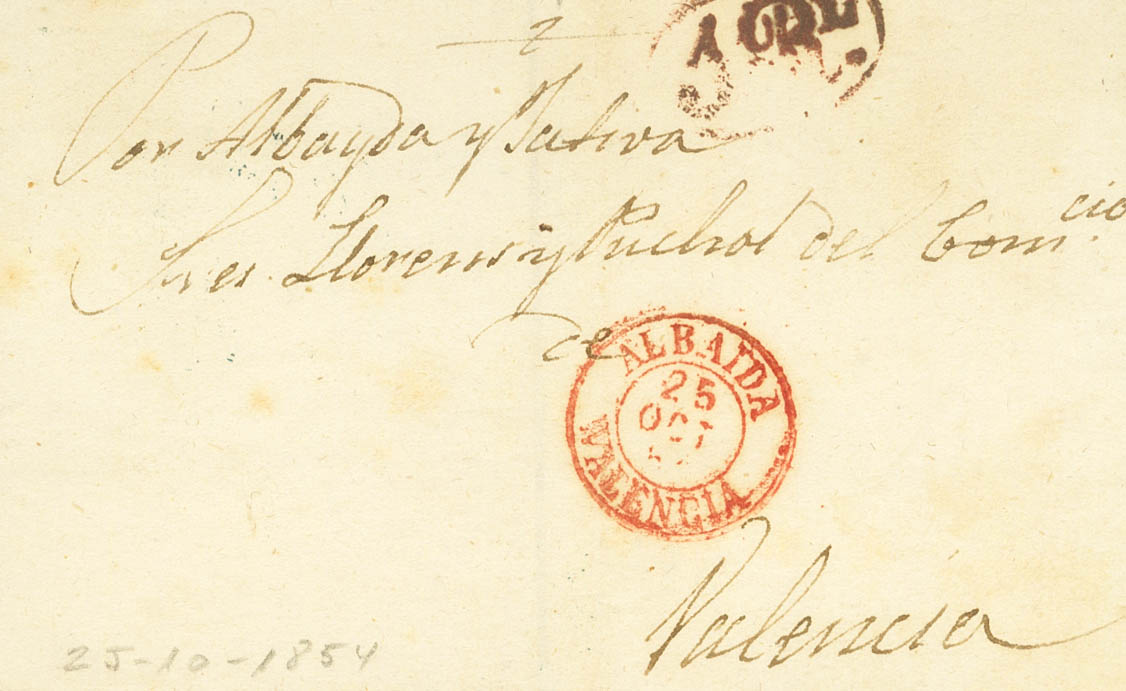 Por Albayda y Jativa
Sres. Llorens y Puchol del Com.cio
de
ALBAIDA
25
OCT
VALENCIA
Valencia
25-10-1854